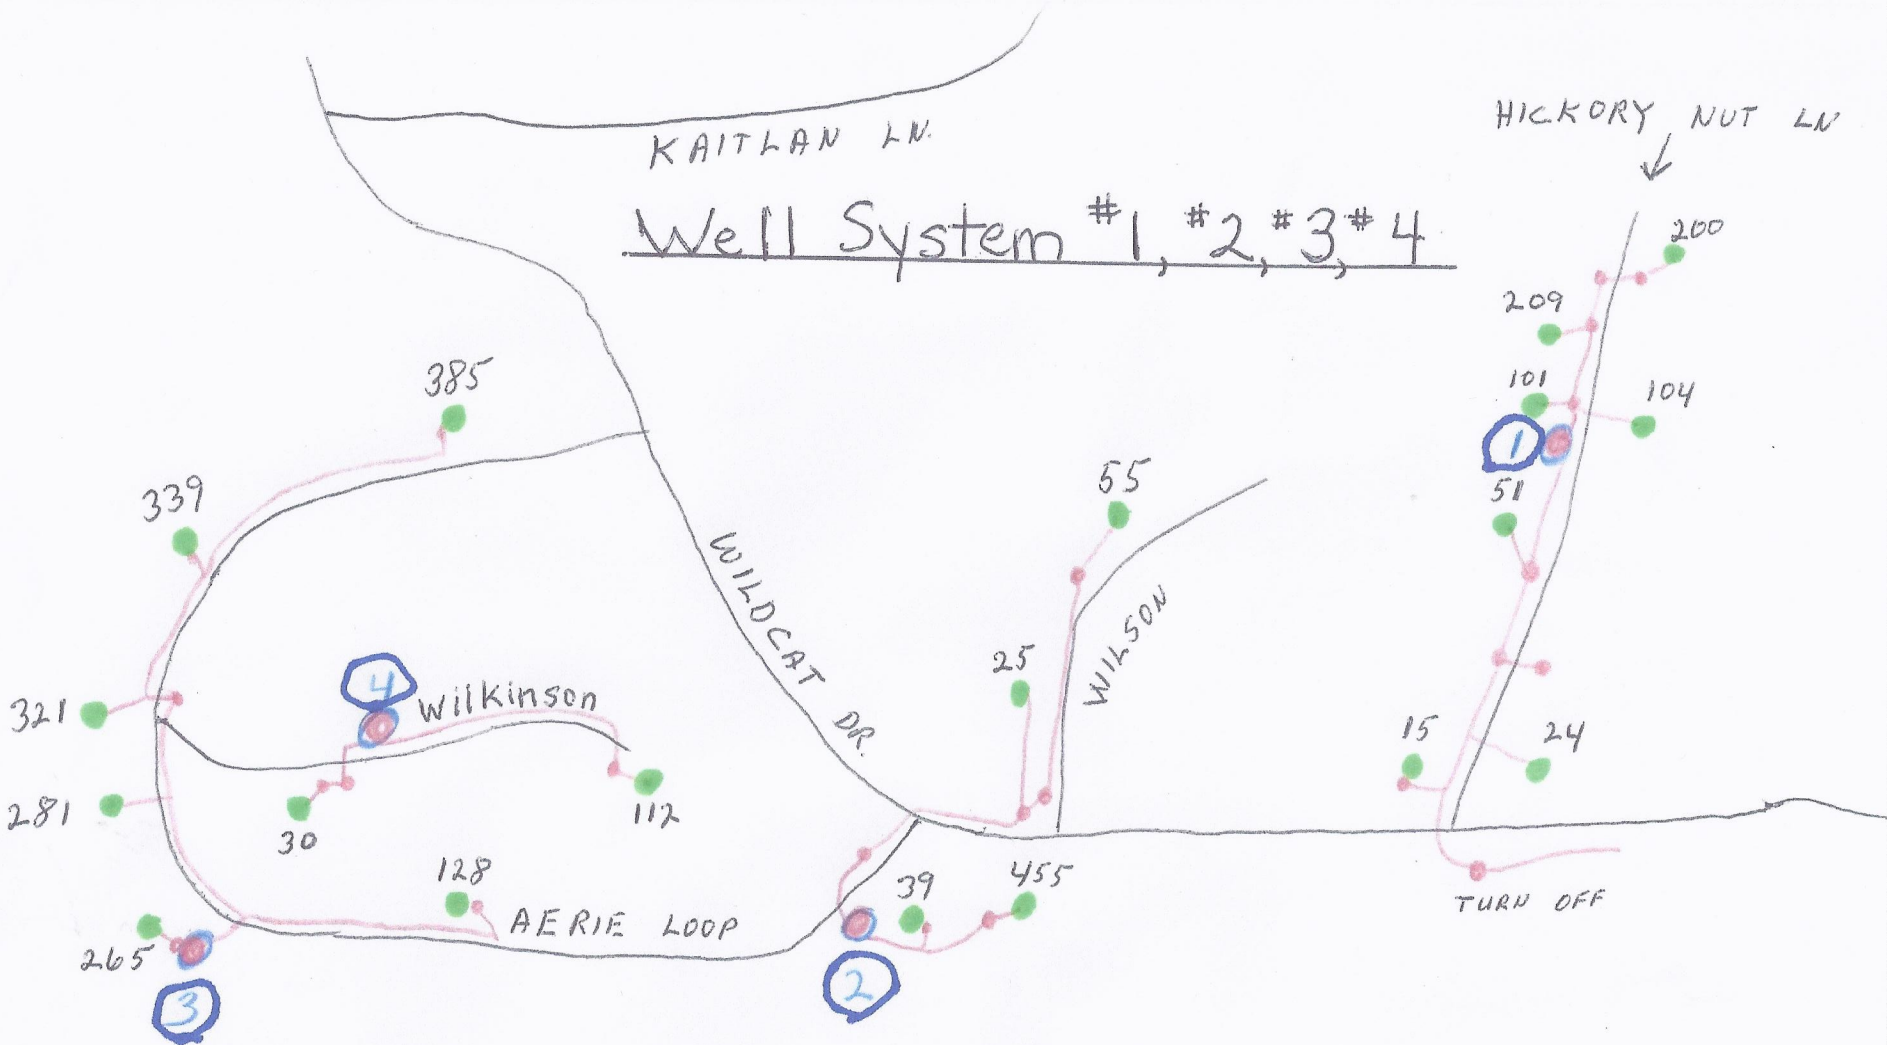 KAITLAN LN.
HICKORY NUT LN
Well System #1, #2, #3, #4
200
209
101
104
1
51
385
339
55
WILDCAT DR.
WILSON
25
4
Wilkinson
321
281
30
112
15
24
128
AERIE LOOP
39
455
TURN OFF
265
3
2